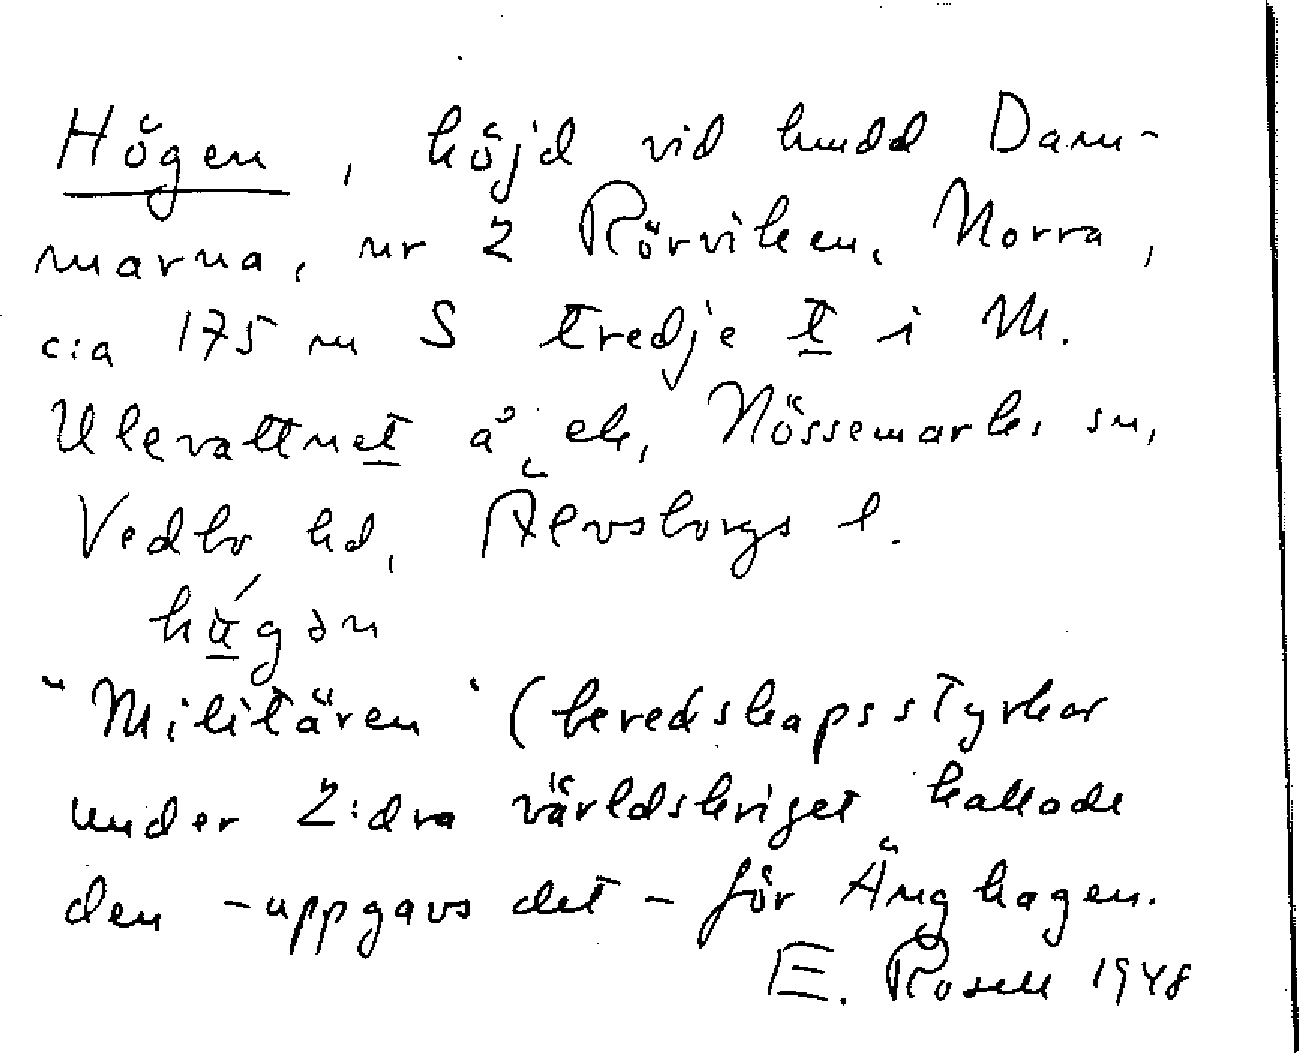 Högen, höjd vid hmdd Dam-
marna, nr 2 Rörviken, Norra,
c:a 175 m S tredje t i M.
Ulevattnet å ek, Nössemarks sn,
Vedbo hd, Älvsborgs l.
hǿgən
"Militären" (beredskapsstyrkor
under 2:dra världskriget kallade
den - uppgavs det - för Änghagen.
E. Rosell 1948